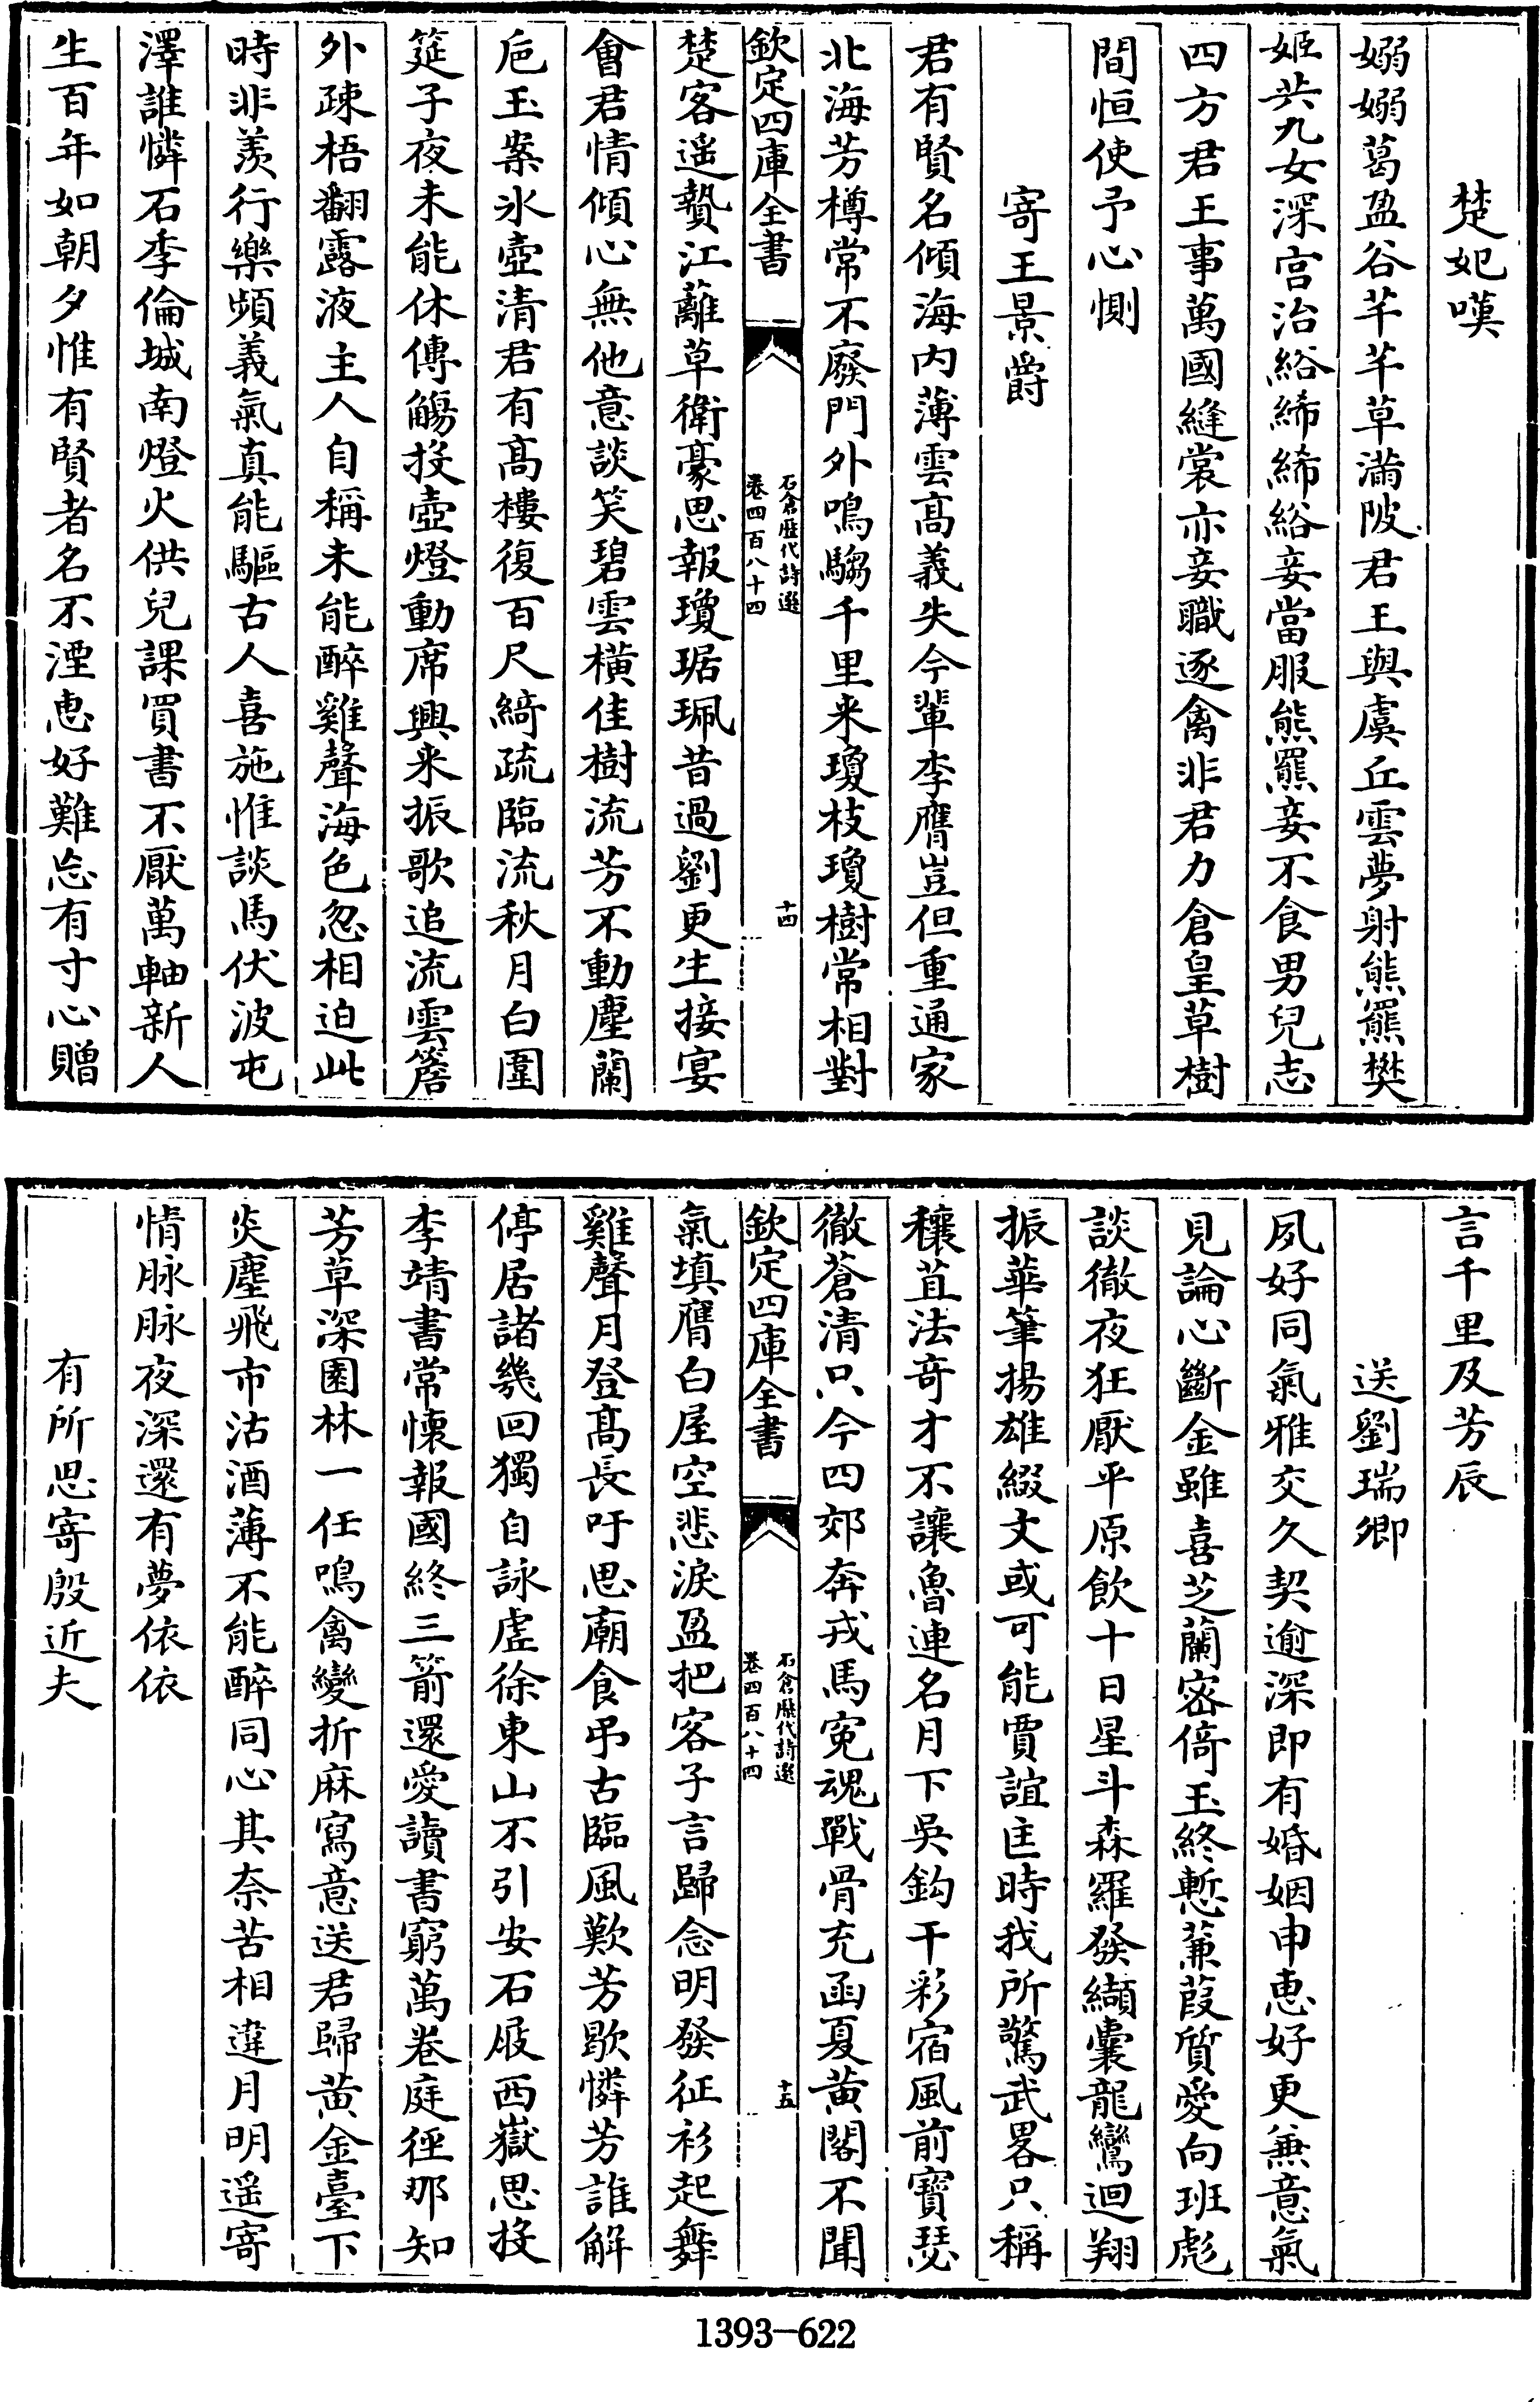 楚妃嘆
嫋嫋葛盈谷芊芊草滿陂君王與虞丘雲夢射熊羆樊
姬共九女深宫治綌絺絺綌妾當服熊羆妾不食男兒志
四方君王事萬國縫裳亦妾職逐禽非君力倉皇草樹
間恒使予心惻
寄王景爵
君有賢名傾海内薄雲髙義失今輩李膺豈但重通家
北海芳樽常不廢門外鳴騶千里来瓊枝瓊樹常相對
欽定四庫全書
石倉歴代詩選
卷四百八十四
十四
楚客遥贄江蘺草衛豪思報瓊琚珮昔過劉更生接宴
會君情傾心無他意談笑碧雲橫佳樹流芳不動塵蘭
巵玉案氷壺清君有髙樓復百尺綺疏臨流秋月白圍
筵子夜未能休傳觴投壺燈動席興来振歌追流雲簷
外疎梧翻露液主人自稱未能醉雞聲海色忽相迫此
時非羨行樂頻義氣真能驅古人喜施惟談馬伏波屯
澤誰憐石季倫城南燈火供兒課買書不厭萬軸新人
生百年如朝夕惟有賢者名不湮恵好難忘有寸心贈
言千里及芳辰
送劉瑞卿
夙好同氣雅交久契逾深即有婚姻申恵好更兼意氣
見論心斷金雖喜芝蘭宻倚玉終慙蒹葭質愛向班彪
談徹夜狂厭平原飲十日星斗森羅發纈囊龍鸞迴翔
振華筆揚雄綴文或可能賈誼匡時我所驚武畧只稱
穰苴法奇才不讓魯連名月下吳鈎干彩宿風前寳瑟
徹蒼清只今四郊奔戎馬寃魂戰骨充函夏黄閣不聞
欽定四庫全書
石倉歴代詩選
卷四百八十四
十五
氣填膺白屋空悲淚盈把客子言歸念明發征衫起舞
雞聲月登髙長吁思廟食弔古臨風歎芳歇憐芳誰解
停居諸幾回獨自詠虚徐東山不引安石屐西嶽思投
李靖書常懷報國終三箭還愛讀書窮萬卷庭徑那知
芳草深園林一任鳴禽變折麻寫意送君歸黄金臺下
炎塵飛市沽酒薄不能醉同心其奈苦相違月明遥寄
情脉脉夜深還有夢依依
有所思寄殷近夫
1393-622